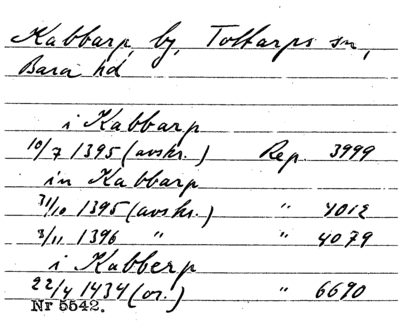 Kabbarp, by, Tottarps sn,
Bara hd
i Kabbarp
10/7 1395 (avskr.) Rep. 3999
in Kabbarp
31/10 1395 (avskr.) " 4012
3/11 1396 " " 4079
i Kabberp
22/4 1434 (or.) " 6690
Nr 5542.